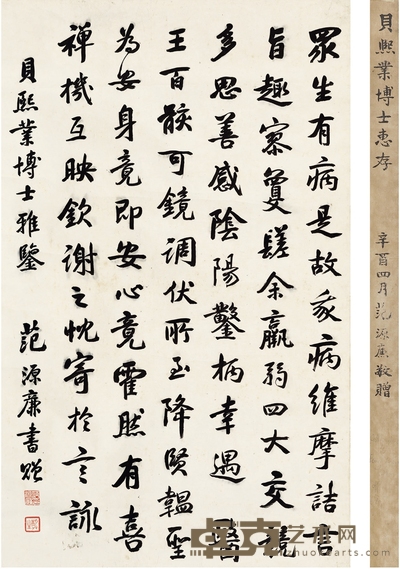 貝熙業博士惠存
辛酉四月范源廉敬贈
眾生有病是故我病維摩詰言
旨趣寥敻嗟余羸弱四大交競
多思善感陰陽鑿枘幸遇醫
王百骸可鏡調伏所至降賢韞聖
為安身竟即安心竟霍然有喜
禪機互映欽謝之忱寄於言詠
貝熙業博士雅鑒
范源廉書贈
卓克艺术网
zhuokearts.com